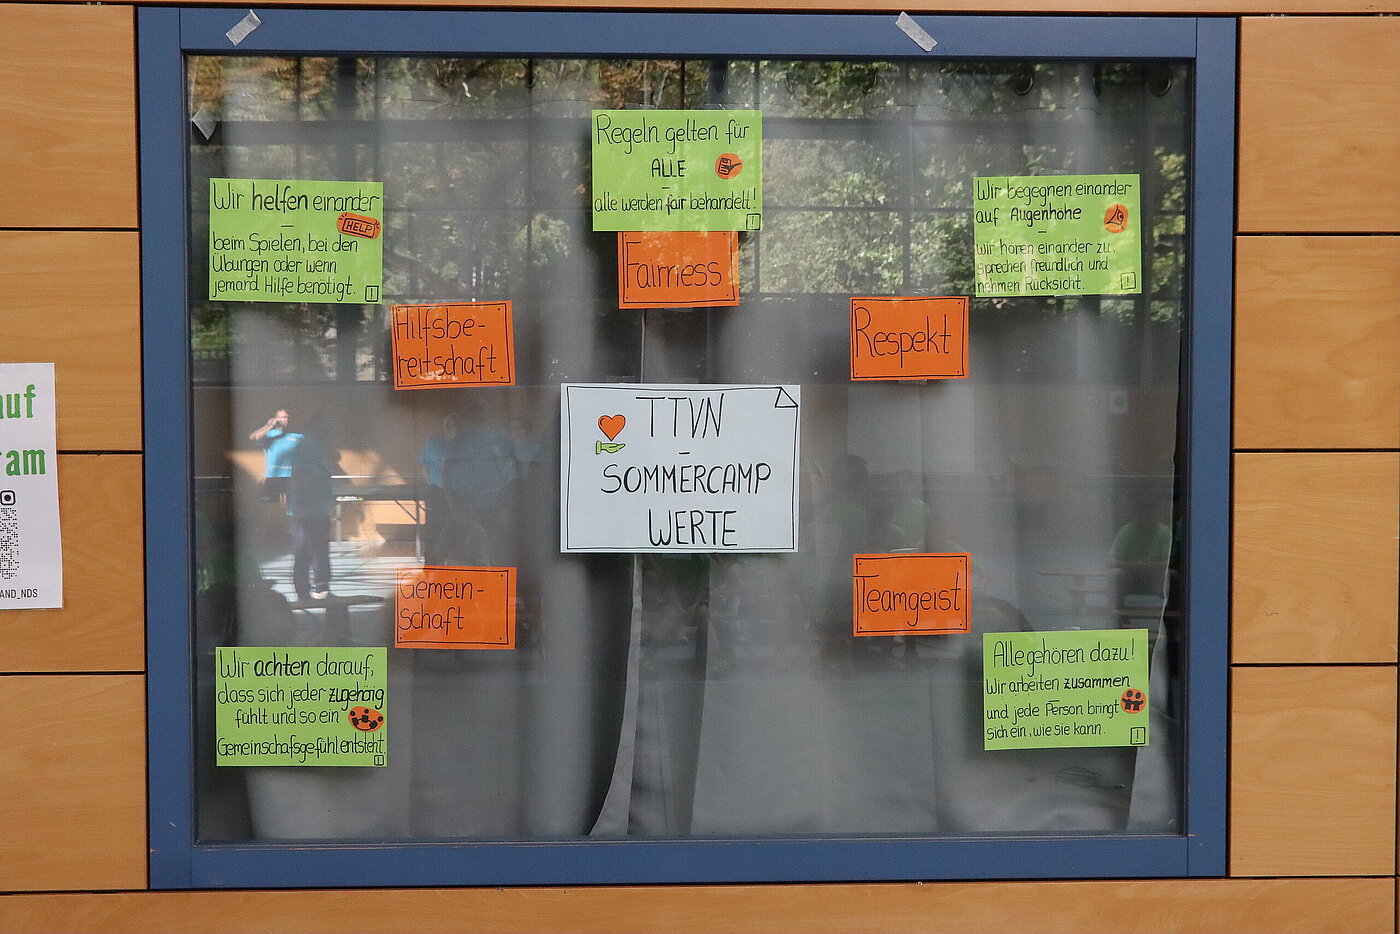 Regeln gelten für
ALLE
–
alle werden fair behandelt!
Fairness
Wir helfen einander
–
HELP
beim Spielen, bei den
Übungen oder wenn
jemand Hilfe benötigt.
Hilfsbe-
reitschaft
Wir begegnen einander
auf Augenhöhe
–
wir hören einander zu,
sprechen freundlich und
nehmen Rücksicht.
Respekt
TTVN
–
SOMMERCAMP
WERTE
Gemein-
schaft
Wir achten darauf,
dass sich jeder zugehörig
fühlt und so ein
Gemeinschafsgefühl entsteht.
Teamgeist
Alle gehören dazu!
Wir arbeiten zusammen
und jede Person bringt
sich ein, wie sie kann.
auf
ram
AND_NDS